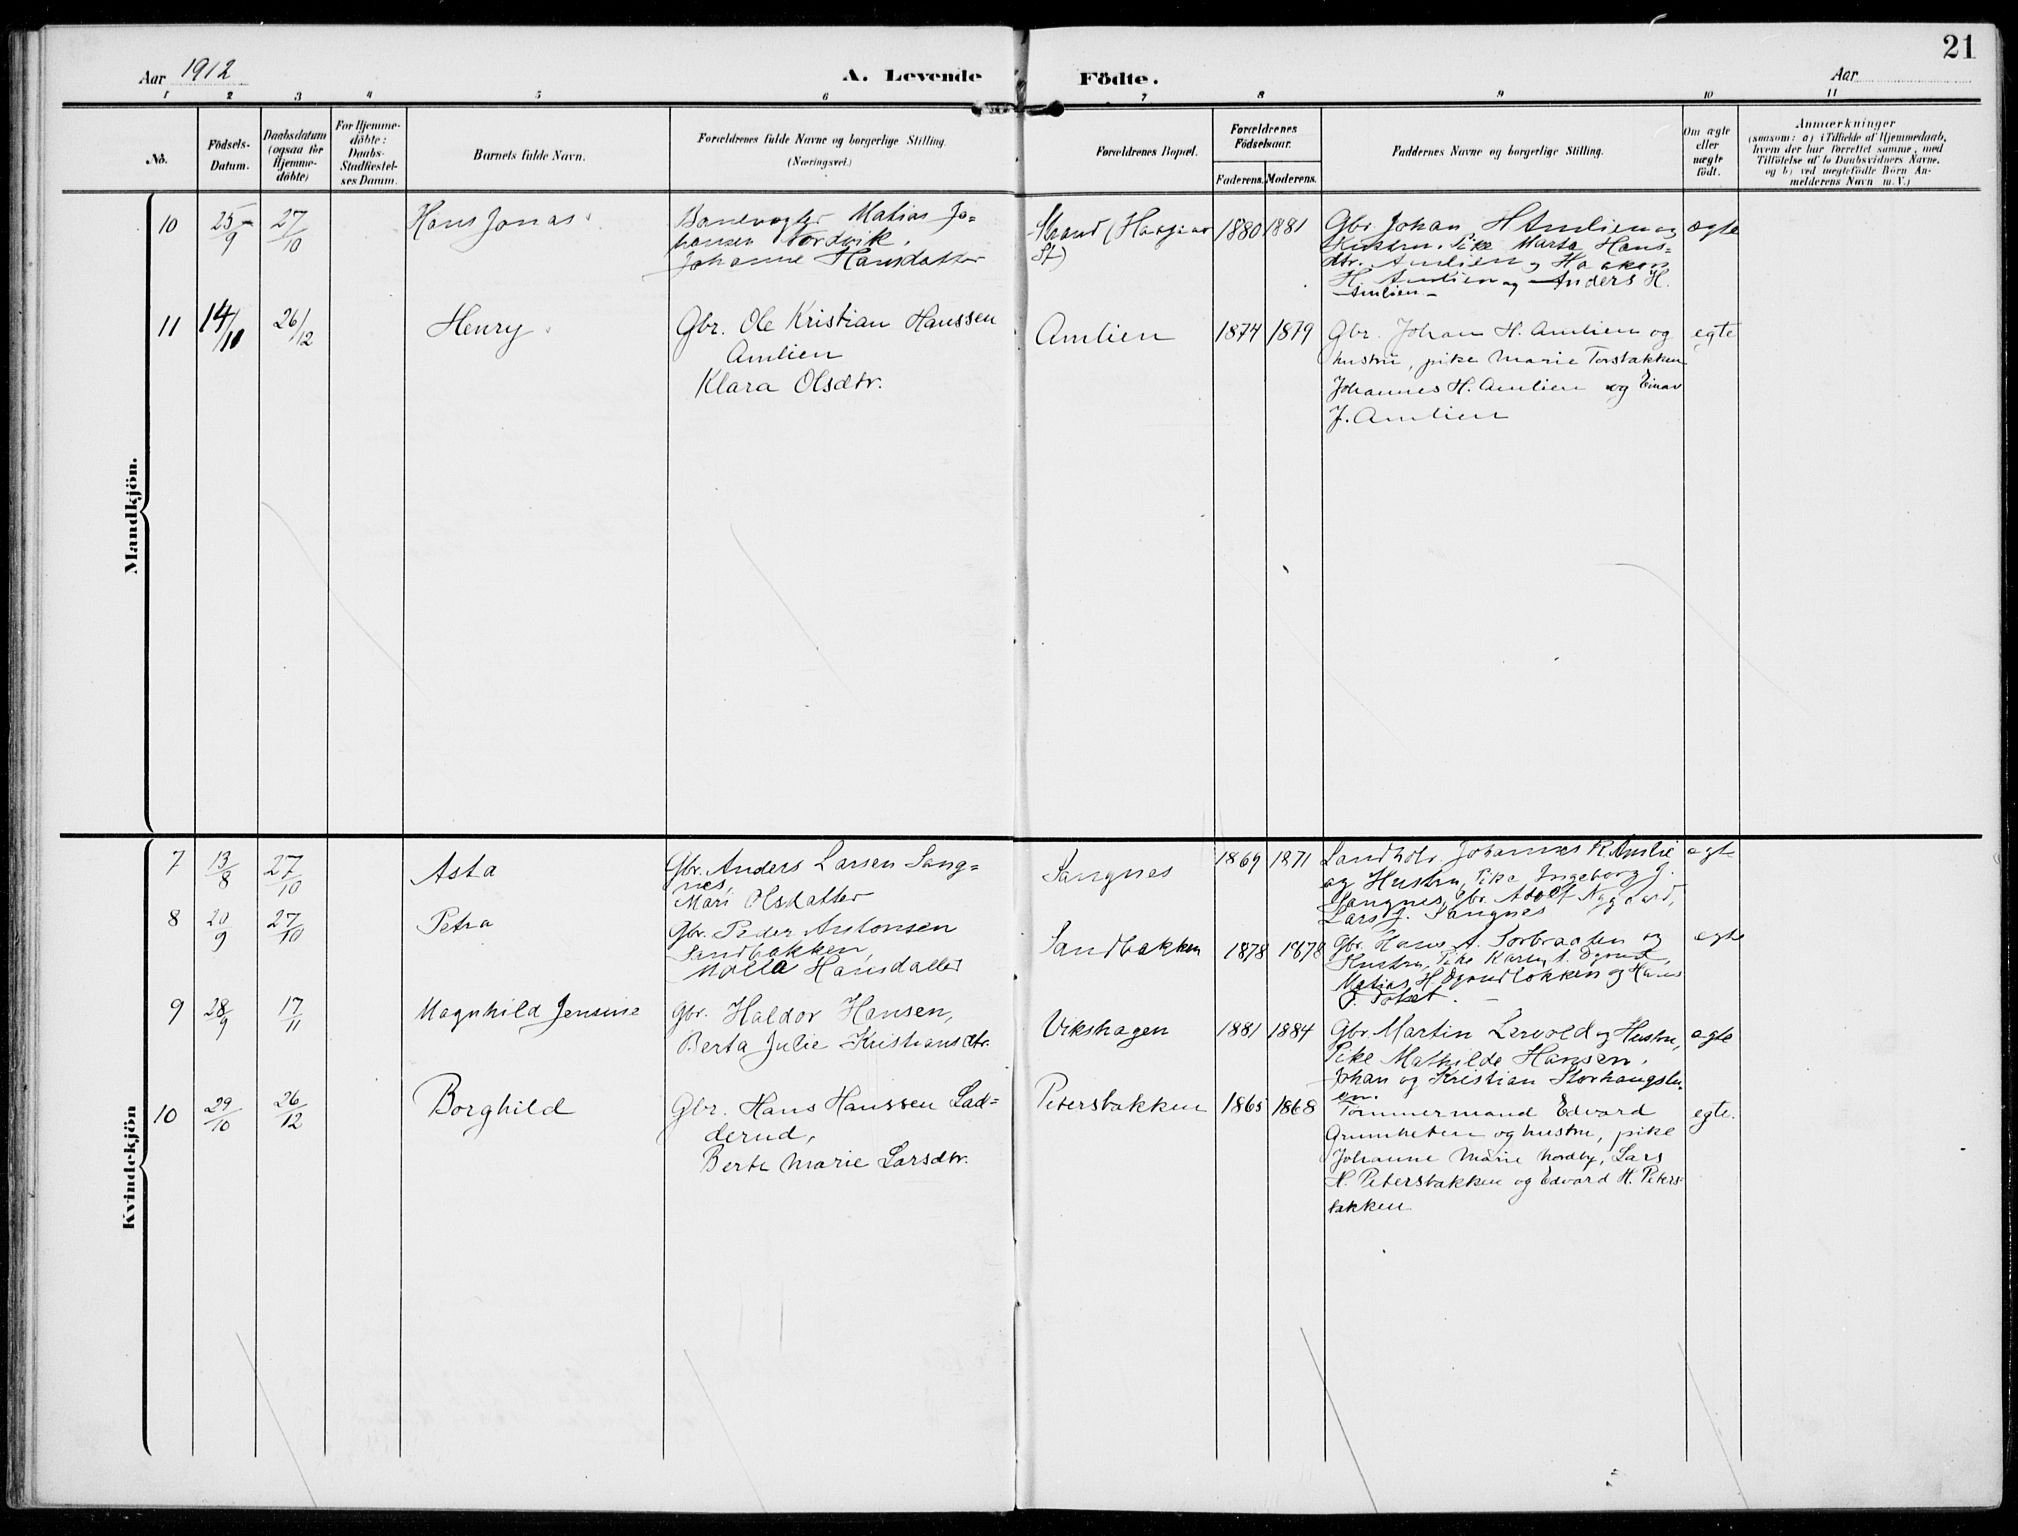 21
Aar 1912
A. Levende Födte.
Aar
1 2 3 4 5 6 7 8 9 10 11
No.
Födsels-
Datum.
Daabsdatum
(ogsaa for
Hjemme-
döbte)
For Hjemme-
döbte:
Daabs-
Stadfæstel-
ses Datum.
Barnets fulde Navn.
Forældrenes fulde Navne og borgerlige Stilling.
(Næringsvei.)
Forældrenes Bopæl.
Forældrenes
Födselsaar.
Faderens. Moderens.
Faddernes Navne og borgerlige Stilling.
Om ægte
eller
uægte
födt.
Anmærkninger
(saasom: a) i Tilfælde af Hjemmedaab,
hvem der har forrettet samme, med
Tilföielse af to Daabsvidners Navne.
og b) ved uægtefödte Börn An-
melderens Navn m. V.)
Mandkjön.
10
25/9
27/10
Hans Jonas
Banevogter Matias Jo=
hansen Nordvik.
Johanne Hansdatter
Strand
St)
1880 1881
Gbr Johan H Amlien og
Hustru. Pike Marta Hans=
dtr. Amlien og Haakon
H. Amlien og Anders H.
Amlien
ægte
11
14/10
26/12
Henry
Gbr. Ole Kristian Hanssen
Amlien
Klara Olsdtr.
Amlien
1874 1879
Gbr. Johan H. Amlien og
hustru, pike Marie Torsbakken
Johannes H. Amlien og Einar
J. Amlien
egte
Kvindekjön
7
13/8
27/10
Asta
Gbr. Anders Larsen Sang=
nes,
Mari Olsdatter
Sangnes
1869 1871
Landhdlr. Johannes R. Amlie
og Hustru, Pike Ingeborg J.
Sangnes, Gbr. Adolf Nygaard,
Lars J. Sangnes
egte
8
20/9
27/10
Petra
Gbr. Peder Antonsen
Sandbakken,
Hansdatter
Sandbakken
1878 1878
Gbr. Hans A. Sorbraaten og
Hustru, Pike
Matias H og Hans
P.
egte
9
28/9
17/11
Magnhild Jensine
Gbr. Haldor Hansen,
Berta Julie Kristiansdtr.
Vikshagen
1881 1884
Gbr. Martin Lervold og Hustru,
Pike Mathilde Hansen,
Johan og Kristian Storhaugsli=
en.
egte
10
29/10
26/12
Borghild
Gbr. Hans Hanssen Lad=
derud,
Berte Marie Larsdtr.
Petersbakken
1865 1868
Tömmermand Edvard
og hustru, pike
Johanne Marie Nordby, Lars
H. Petersbakken og Edvard H. Peters=
bakken
egte.